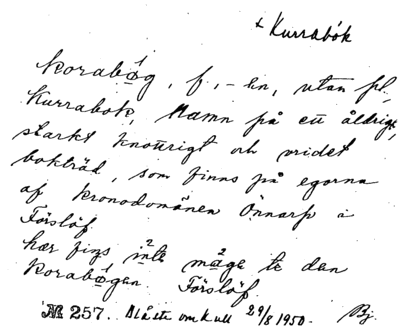 + Kurrabók
korabóg, f., -en, utan pl.
Kurrabok, Namn på ett åldrigt,
starkt knotrigt och vridet
bokträd, som finns på egorna
af kronodomänen Önnarp i
Förslöf.
här fins inte måge te den
korabógen. Förslöf
№ 257. Blåste omkull 29/8 1950. Bj.